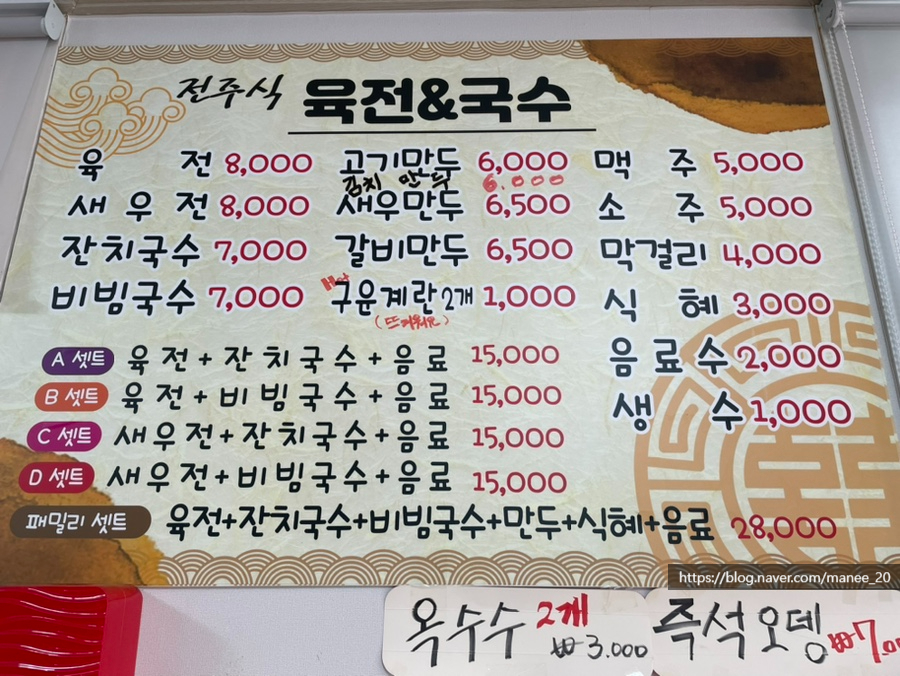 전주식 육전&국수
육 전 8,000 고기만두 6,000 맥 주 5,000
김치 만두 6.000
새 우 전 8,000 새우만두 6,500 소 주 5,000
잔치국수 7,000 갈비만두 6,500 막걸리 4,000
Hot
비빔국수 7,000 구운계란2개 1,000 식 혜 3,000
(뜨거워요)
A 셋트 육전+잔치국수+음료 15,000 음료수 2,000
B 셋트 육전+비빔국수+음료 15,000 생 수 1,000
C 셋트 새우전+잔치국수+음료 15,000
D 셋트 새우전+비빔국수+음료 15,000
패밀리 셋트 육전+잔치국수+비빔국수+만두+식혜+음료 28,000
https://blog.naver.com/manee_20
옥수수 2개 ₩3.000 즉석오뎅